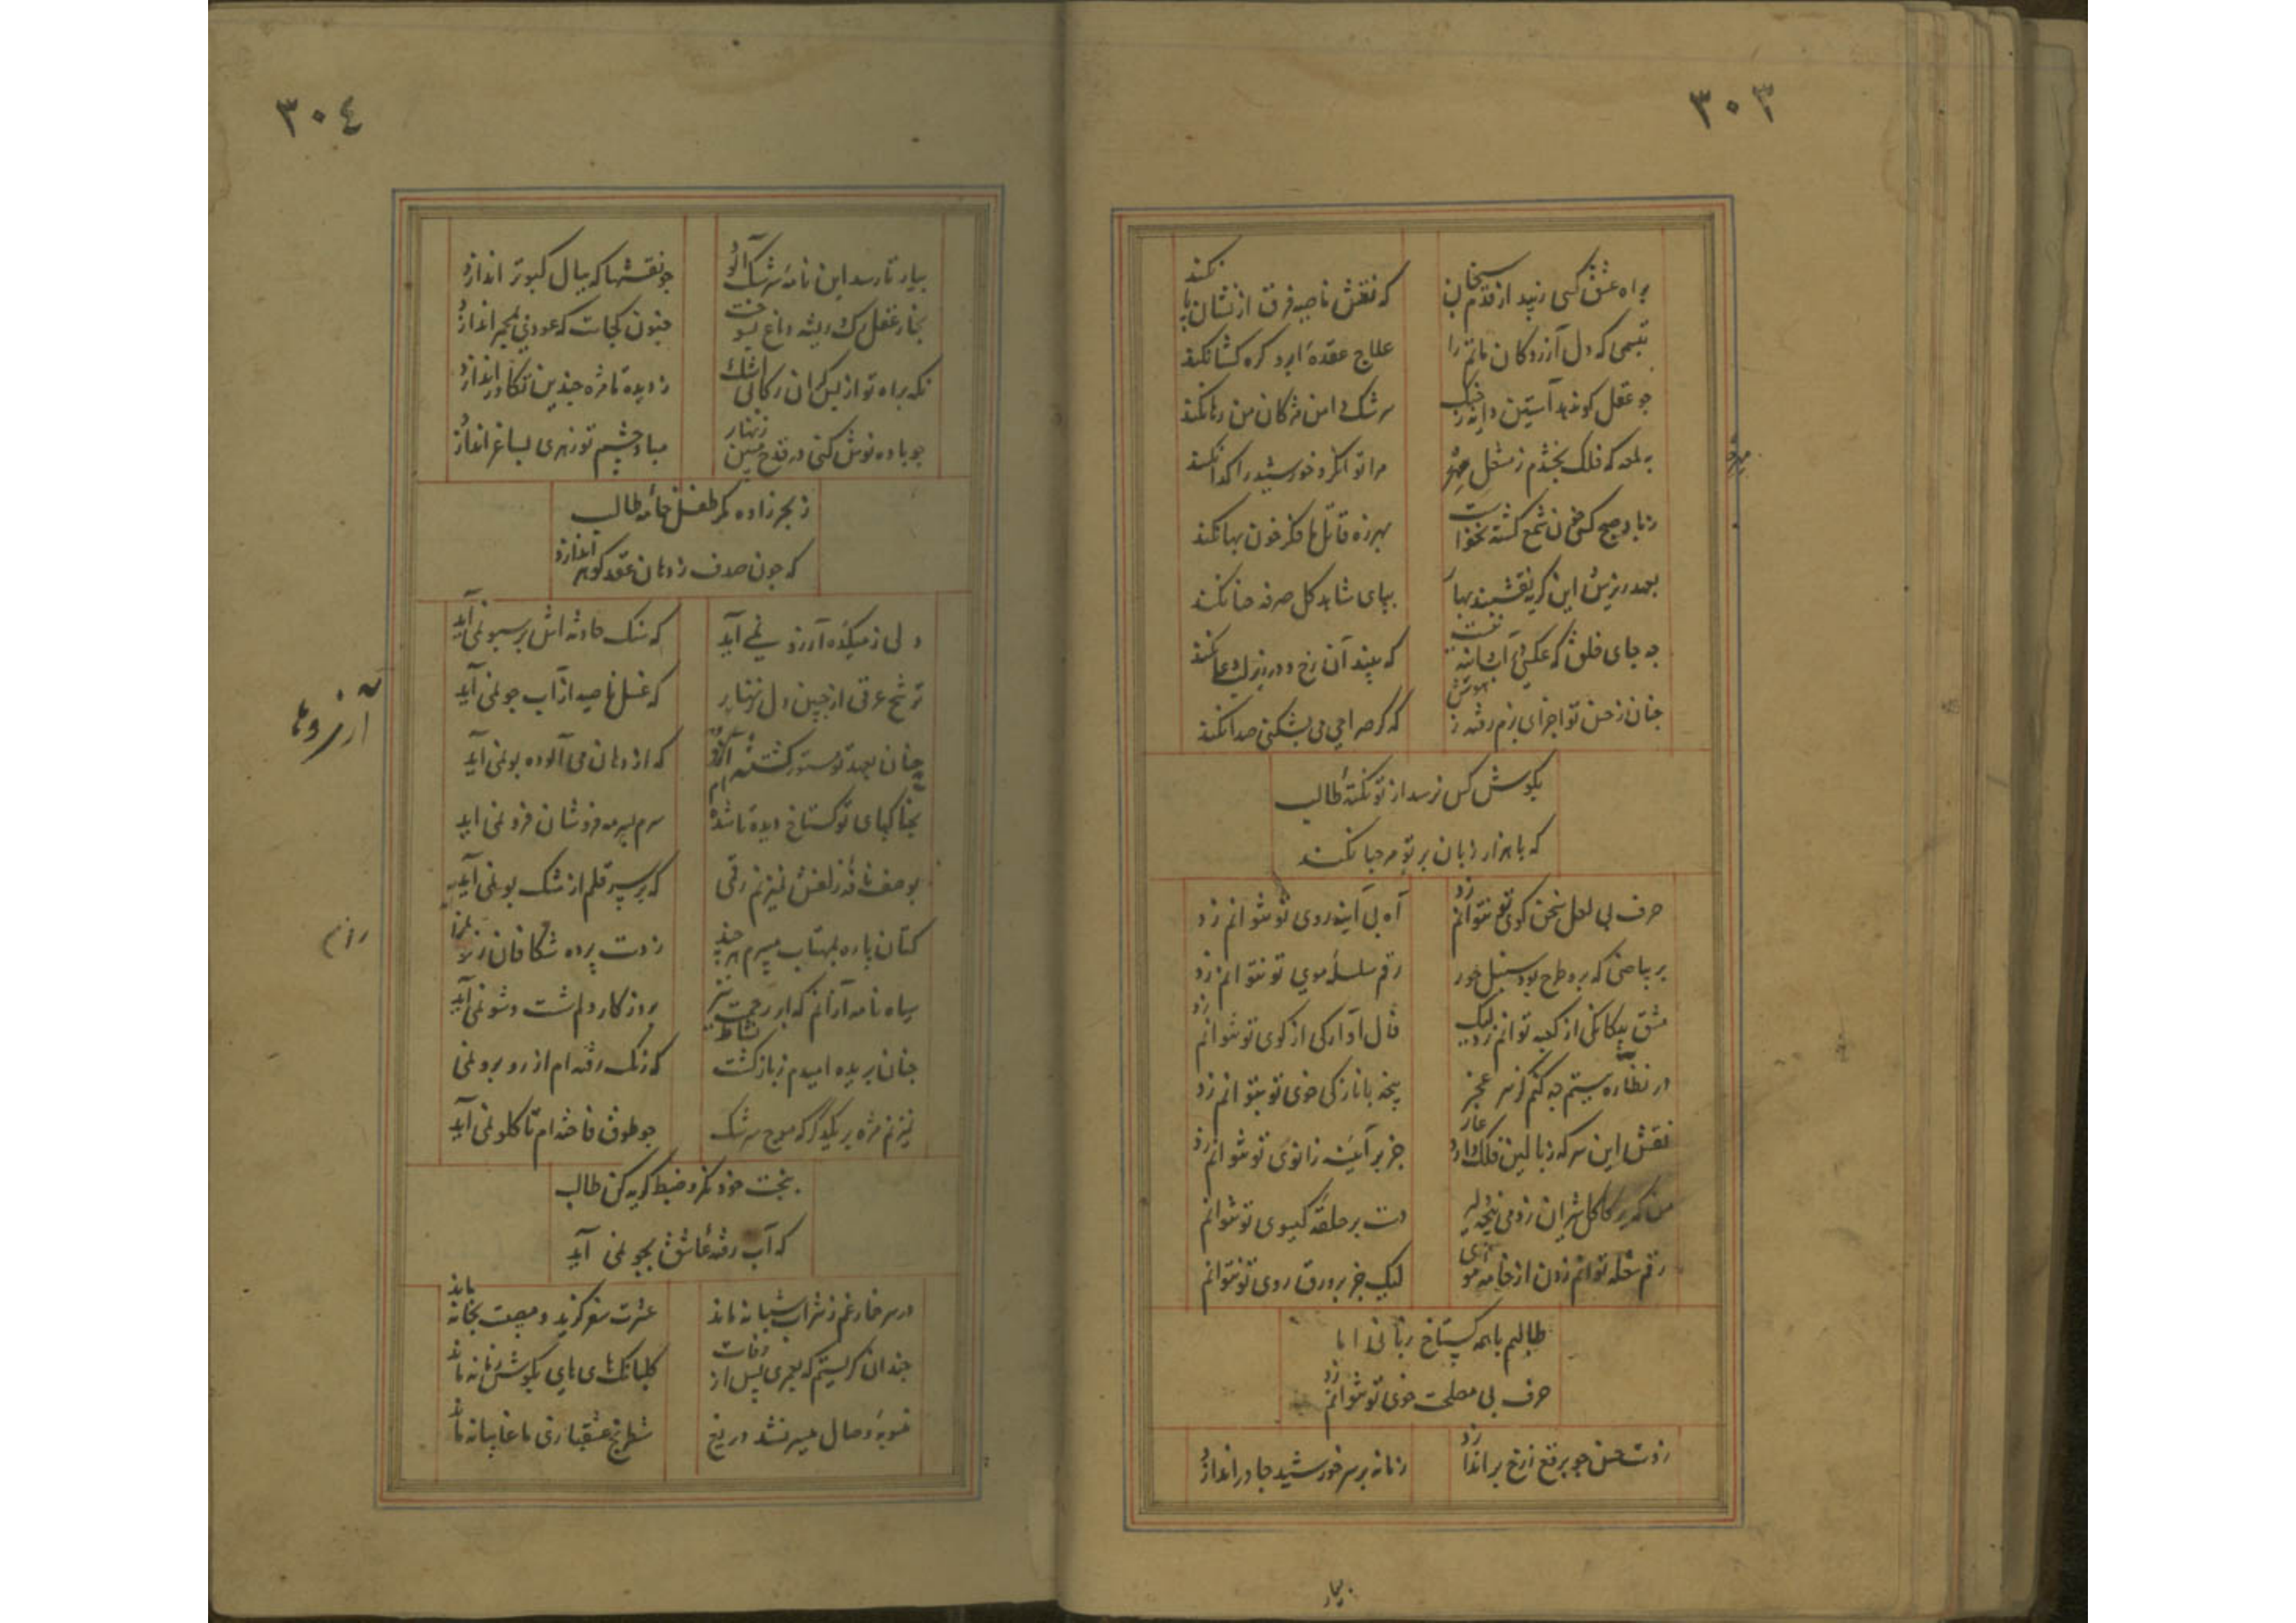 ۳۰۳
براه عشق کسی زیبد از قدم سنجان
که نقش ناصیه فرق از نشان پا نکند
تبسمی که دل آزردکان ماتم را
علاج عقدهٔ ابرو کره کشا نکند
جو عقل کو ندهد آستین
سرشک دامن مژکان من رها نکند
که فلک بخشدم ز مشعل مهر
مرا توانکر و خورشید را کدا نکند
ز باد صبح کسی خون شمع کشته نخواست
بهرزه قاتل ما فکر خون بها نکند
بعهد ریزش این کریه نقشبند بهار
بپای شاهد کل صرفه حنا نکند
جه جای خلق که عکس
که بیند آن رخ و در زیر لب دعا نکند
جنان ز حسن تو اجزای بزم رفته ز هوش
که کر صراحی می بشکنی صدا نکند
بکوش کس نرسد از تو نکتهٔ طالب
که با هزار زبان بر تو مرحبا نکند
حرف بی لعل سخن کوی تو نتوانم زد
آه بی آینه روی تو نتوانم زد
بر بیاضی که برو طرح بود سنبل حور
رقم سلسلهٔ موی تو نتوانم زد
مشق بیکانکی از کعبه توانم زد لیک
فال آوارکی از کوی تو نتوانم زد
در نظاره ببستم جه کنم کز سر عجز
پنجه با نازکی خوی تو نتوانم زد
نقش این سر که ز بالین فلک دارد عار
جز بر آینه زانوی تو نتوانم زد
من که بر کاکل شیران زدمی پنجه
دست بر حلقه کیسوی تو نتوانم
رقم شعله توانم زدن از خامه موی
لیک جز بر ورق روی تو نتوانم
طالبم با همه کستاخ زبانی اما
حرف بی مصلحت خوی تو نتوانم زد
ز دست حسن جو برقع ز رخ براندازد
زمانه بر سر خورشید جادر اندازد
بیار
۳۰۴
بیار تا رسد این نامهٔ سرشک آلود
جو نقشها که ببال کبوتر اندازد
بخار عقل رک و ریشه دماغ بسوخت
جنون کجاست که عودی بمجمر اندازد
نکه براه تو از بس کران رکابی اشک
ز دیده تا مژه جندین تکاور اندازد
جو باده نوش کنی در قدح مبین زنهار
مباد چشم تو زهری بساغر اندازد
ز بحر زاده مکر طفل خامهٔ طالب
که جون صدف ز دهان عقد کوهر اندازد
دلی ز میکده آرزو نمی آید
که سنک حادثه اش بر سبو نمی آید
ترشح عرقی از جبین دل زنهار
که غسل ناصیه از آب جو نمی آید
چنان بعهد تو مستور کشته
که از دهان می آلوده بو نمی آید
بخاکپای تو کستاخ دیده تا شده ام
سرم بسرمه فروشان فرو نمی آید
بوصف نافهٔ زلفش نمیزنم رقمی
که بر سر قلم از مشک بو نمی آید
کتان پاره بمهتاب میبرم هرچند
ز دست پرده شکافان رفو نمی آید
سیاه نامه تر از آنم که ابر رحمت نیز
بروز کار دلم شست وشو نمی آید
جنان بریده امیدم ز بازکشت نشاط
که رنک رفته ام از رو برو نمی
نمیزنم مژه بر یکدکر که موج سرشک
جو طوق فاخته ام تا کلو نمی آید
بخت خود نکر و ضبط کریه کن طالب
که آب رفتهٔ عاشق بجو نمی آید
در سر خمار غم ز شراب شبانه ماند
عشرت سفر کزید و مصیبت بخانه ماند
جندان کریستم که بعمری پس از وفات
کلبانک های های بکوش زمانه ماند
وصال میسر نشد دریغ
شطرنج عشقبازی ما غایبانه ماند
آرزوها